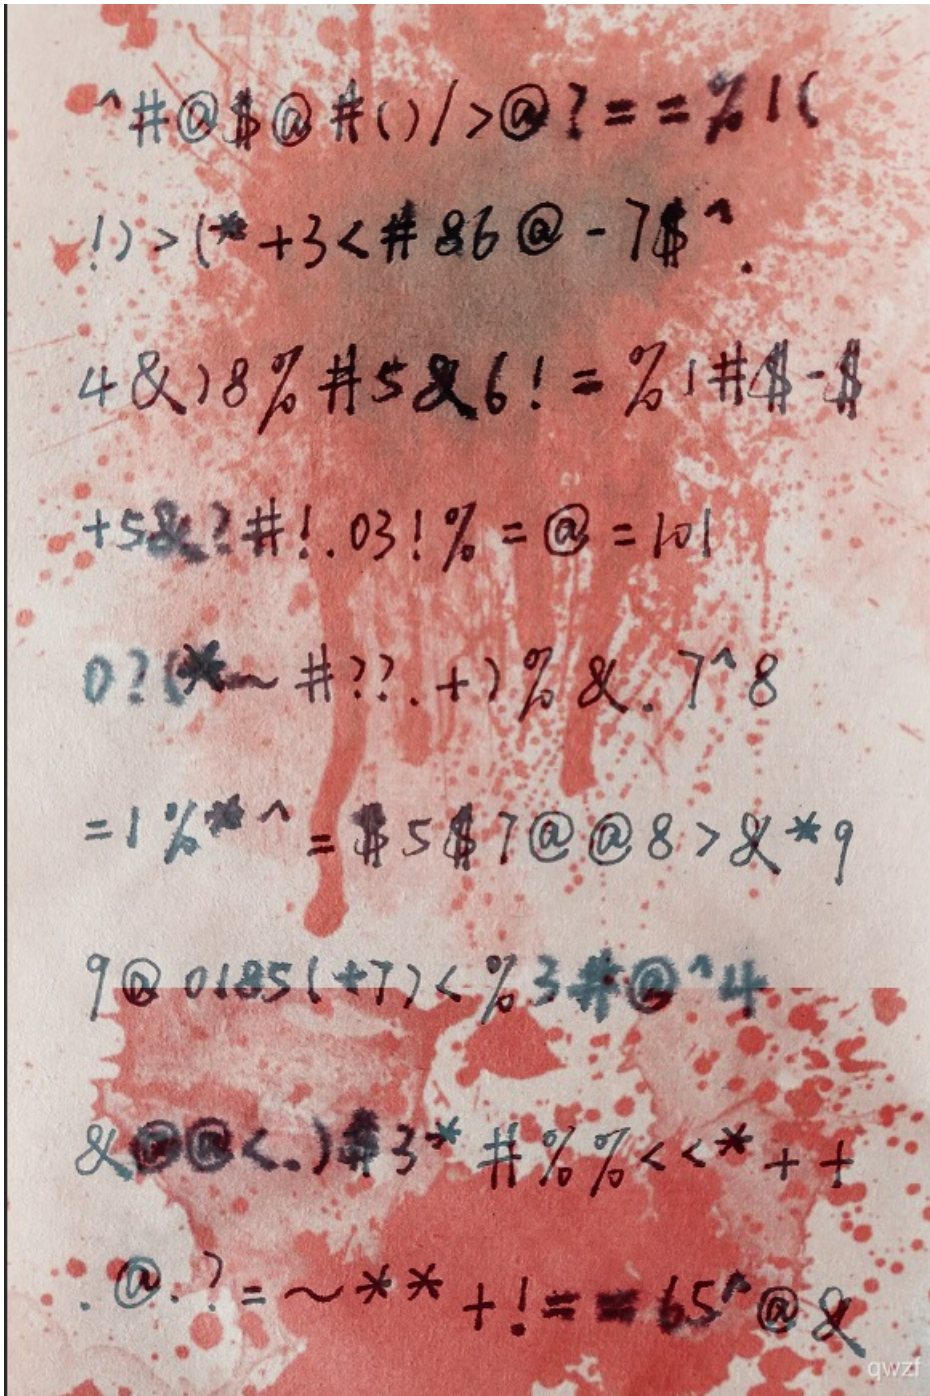 ^#@$@#()/>@?==%1(
!)>(*+3<#86@-7$^.
4&)8%#5&6!=%1#$-$
+5&?#!.03!%=@=101
0?(*~#??.+)%&.7^8
=1%*^=$5$7@@8>&*9
9@0185(+7)<%3#@^4
&@@<.)#3*#%%<<*++
.@.?=~**+!==65^@&
qwzf